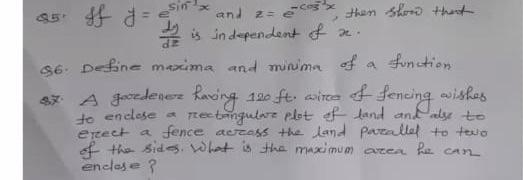 Q5. If y = e^sin⁻¹x and z = e^-cos⁻¹x, then show that
dy/dz is independent of x.
Q6. Define maxima and minima of a function
Q7. A goardenere having 120 ft. wire of fencing wishes
to enclose a rectangulare plot of land and also to
erect a fence across the land parallel to two
of the sides. What is the maximum area he can
enclose?